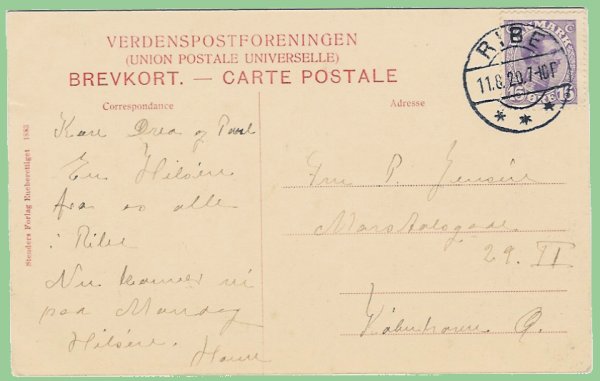 VERDENSPOSTFORENINGEN
(UNION POSTALE UNIVERSELLE)
BREVKORT. — CARTE POSTALE
Correspondance
Adresse
Kære Drea og Poul
En Hilsen
fra os alle
i Ribe
Nu kommer vi
paa Mandag
Hilsen.
Fru P. Jensen
Marstalsgade
29 II
København Ø.
Stenders Forlag Eneberettiget 1883
RIBE
11.8.20.7-10F
* * *
DANMARK
15 ØRE 15